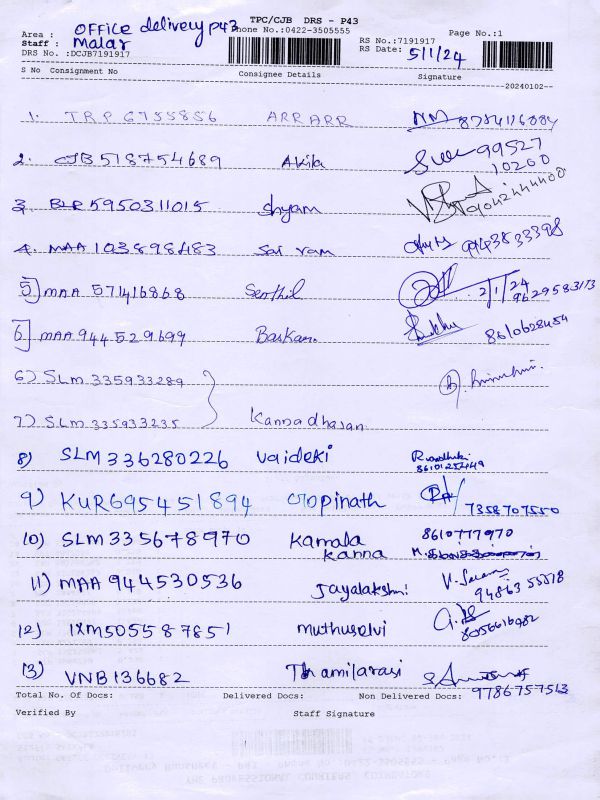 TPC/CJB DRS - P43
Area : Office delivery P43 Phone No.:0422-3505555 Page No.:1
Staff : Malar RS No.:7191917
DRS No. :DCJB7191917 RS Date: 5/1/24
S No Consignment No Consignee Details Signature
--20240102--
1. TRP 6755856 ARR ARR
2. CJB 518754689 Akila 99527 10200
3. BLR 5950311015 Shyam
4. MAA 103898483 Sai ram
5] MAA 571416868 Senthil 2/1/24 9629583173
6] MAA 944529699 8610628454
6) SLM 335933289
7) SLM 335933235 Kannadhasan
8) SLM 336280226 Vaideki
9) KUR695451894 Gopinath 7358707550
10) SLM 335678970 Kamala Kanna 8610777970
11) MAA 944530536 Jayalakshmi
12) IXM505587851 Muthuselvi
13) VNB136682 Thamilarasi 9786757513
Total No. Of Docs: Delivered Docs: Non Delivered Docs:
Verified By Staff Signature